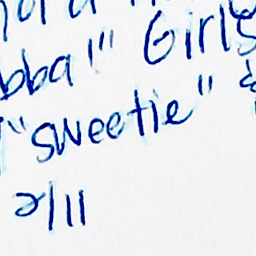 bba!" Girls
"sweetie" &
2/11